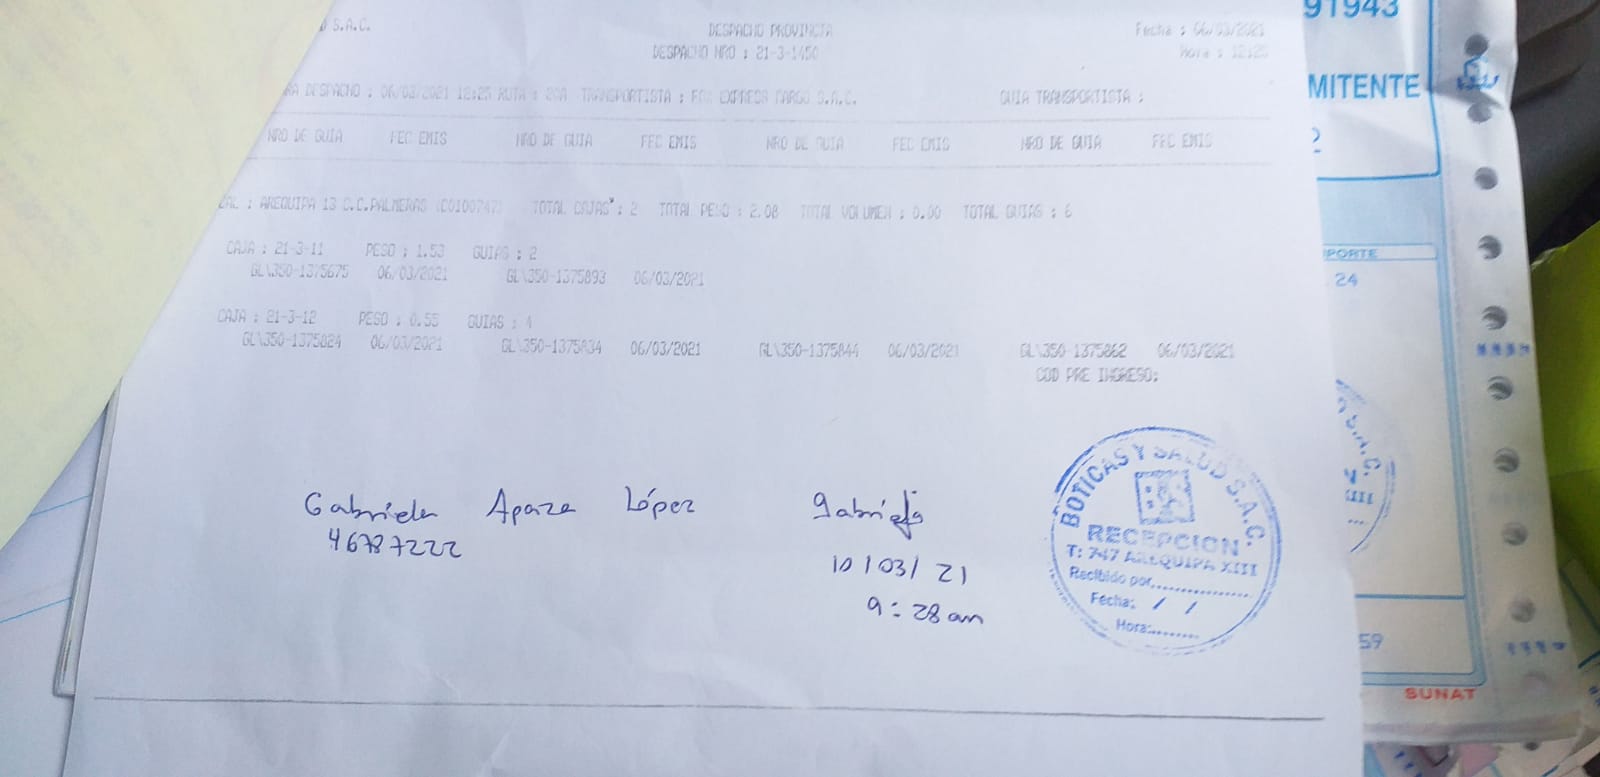 O S.A.C.
DESPACHO PROVINCIA
Fecha : 06/03/2021
DESPACHO NRO : 21-3-1450
Hora : 12:25
RA DESPACHO : 06/03/2021 12:25 RUTA : TRANSPORTISTA : EXPRESA CARGO S.A.C. GUIA TRANSPORTISTA :
NRO DE GUIA FEC EMIS NRO DE GUIA FEC EMIS NRO DE GUIA FEC EMIS NRO DE GUIA FEC EMIS
CAL : AREQUIPA 13 C.C.PALMERAS (C0100747) TOTAL CAJAS : 2 TOTAL PESO : 2.08 TOTAL VOLUMEN : 0.00 TOTAL GUIAS : 6
CAJA : 21-3-11 PESO : 1.53 GUIAS : 2
GL\350-1375675 06/03/2021 GL\350-1375893 06/03/2021
CAJA : 21-3-12 PESO : 0.55 GUIAS : 4
GL\350-1375824 06/03/2021 GL\350-1375834 06/03/2021 GL\350-1375844 06/03/2021 GL\350-1375862 06/03/2021
COD PRE INGRESO:
Gabriela Apaza López
46787222
gabriela
10/03/21
9:28 am
BOTICAS Y SALUD S.A.C.
RECEPCION
T: 747 AREQUIPA XIII
Recibido por
Fecha: / /
Hora:
91943
MITENTE
2
PORTE
24
S.A.C.
XIII
59
SUNAT